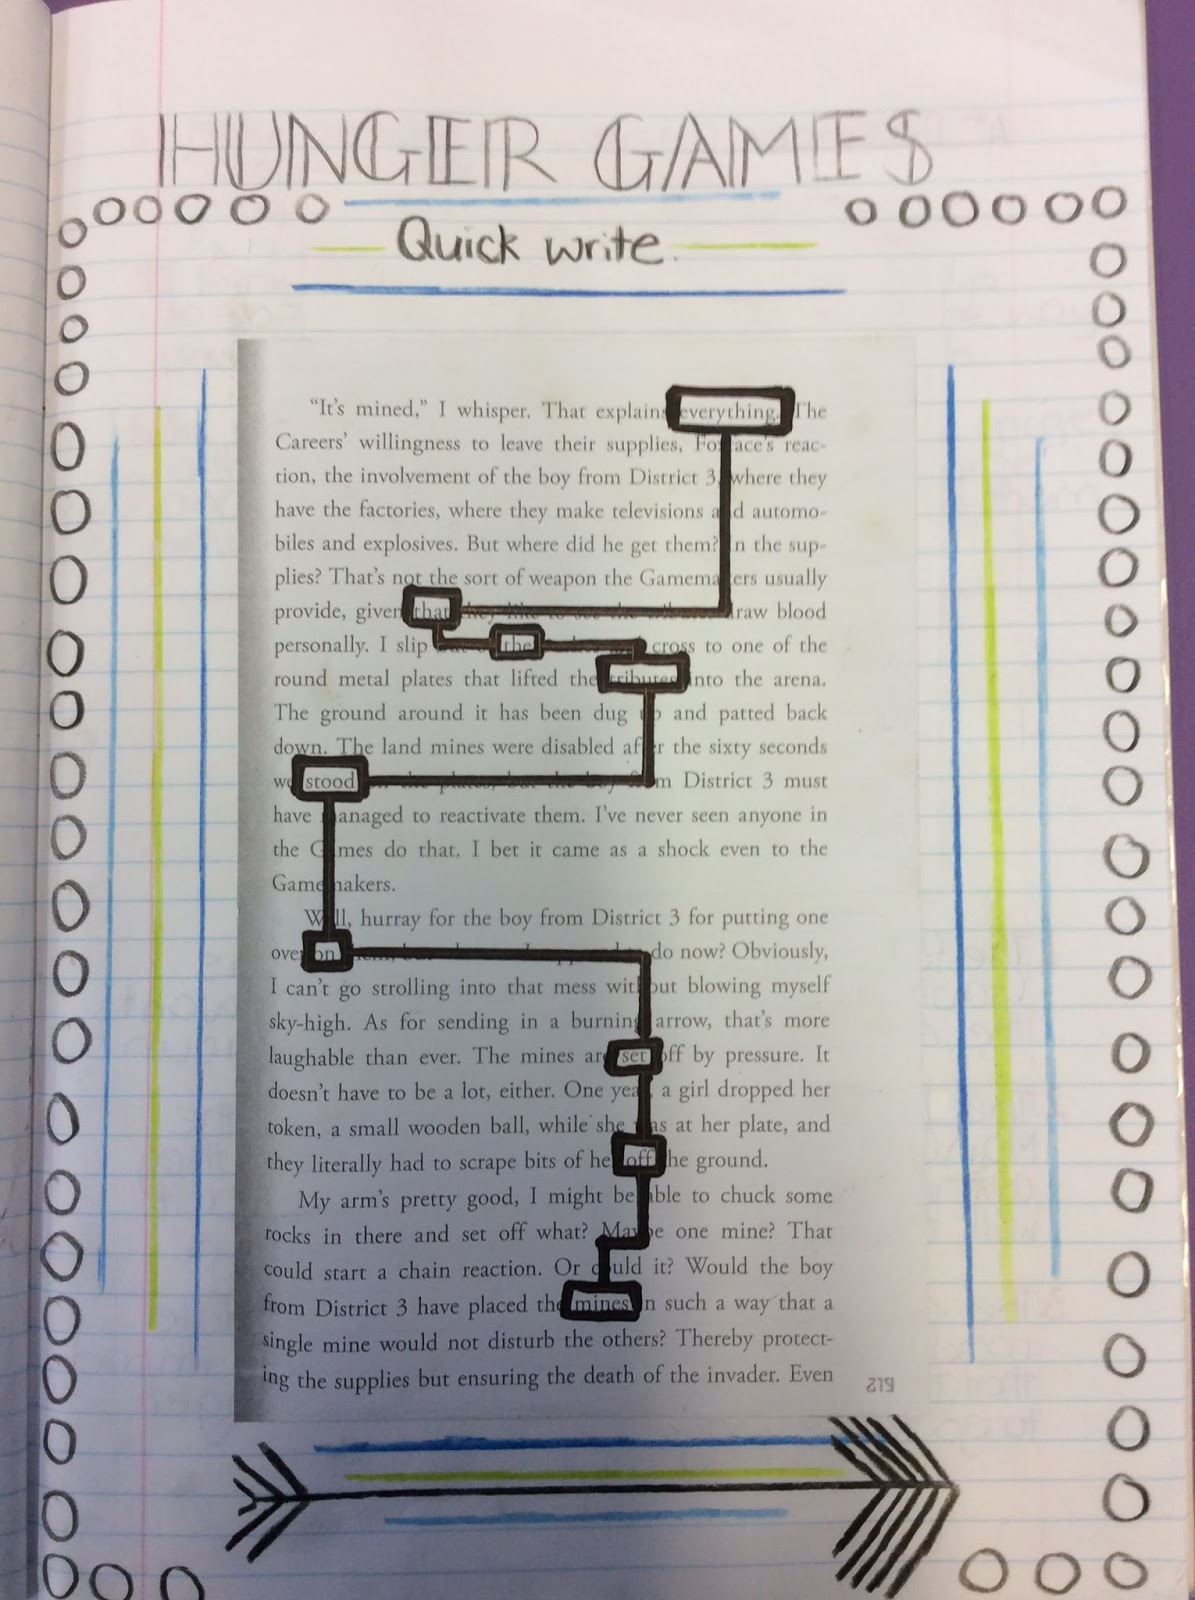 HUNGER GAMES
Quick write.
"It's mined," I whisper. That explains everything. The
Careers' willingness to leave their supplies, Foxface's reac-
tion, the involvement of the boy from District 3, where they
have the factories, where they make televisions and automo-
biles and explosives. But where did he get them? In the sup-
plies? That's not the sort of weapon the Gamemakers usually
provide, given that they like to see the tributes draw blood
personally. I slip out of the bushes and cross to one of the
round metal plates that lifted the tributes into the arena.
The ground around it has been dug up and patted back
down. The land mines were disabled after the sixty seconds
we stood on the plates, but the boy from District 3 must
have managed to reactivate them. I've never seen anyone in
the Games do that. I bet it came as a shock even to the
Gamemakers.
Well, hurray for the boy from District 3 for putting one
over on them, but what am I supposed to do now? Obviously,
I can't go strolling into that mess without blowing myself
sky-high. As for sending in a burning arrow, that's more
laughable than ever. The mines are set off by pressure. It
doesn't have to be a lot, either. One year, a girl dropped her
token, a small wooden ball, while she was at her plate, and
they literally had to scrape bits of her off the ground.
My arm's pretty good, I might be able to chuck some
rocks in there and set off what? Maybe one mine? That
could start a chain reaction. Or could it? Would the boy
from District 3 have placed the mines in such a way that a
single mine would not disturb the others? Thereby protect-
ing the supplies but ensuring the death of the invader. Even
219